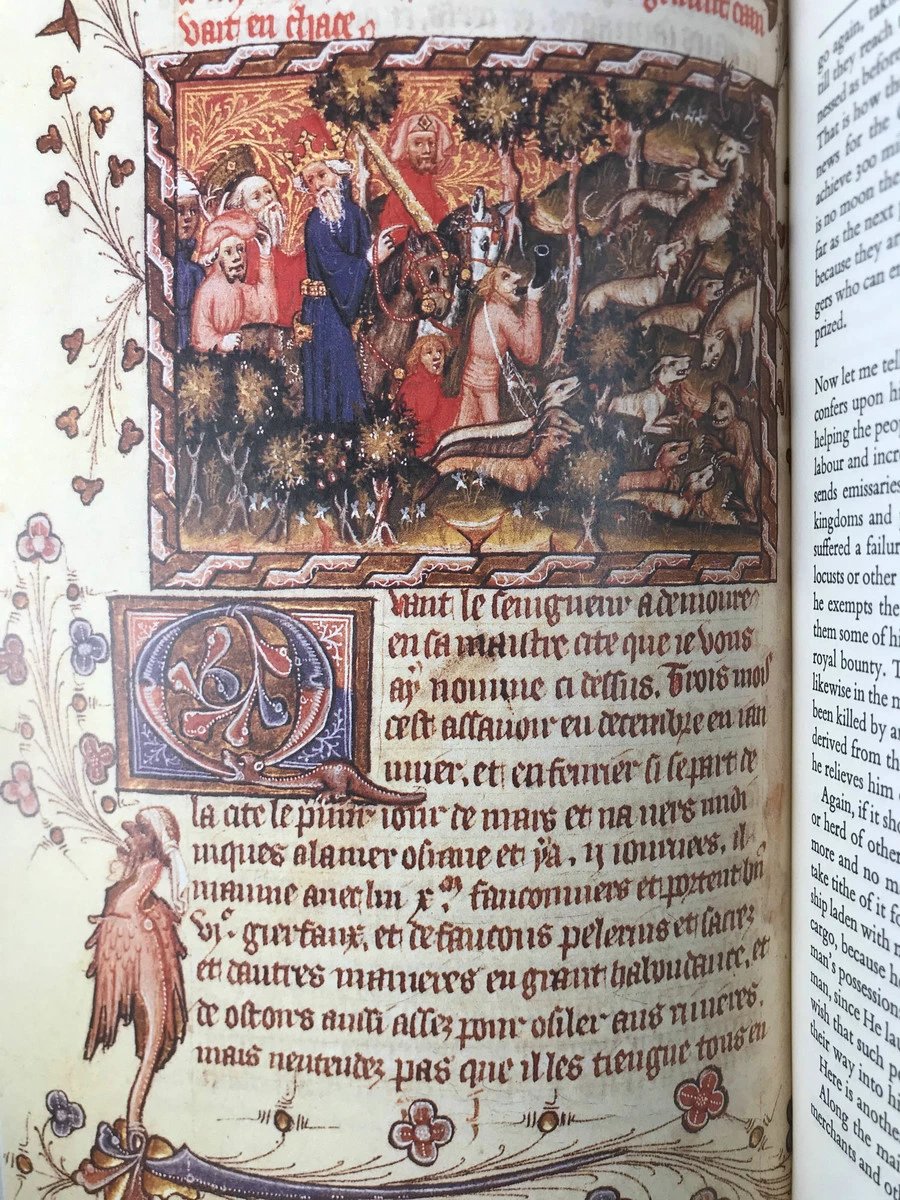 grant caan
vait en chace
Quant le seingneur a demoure
en sa maistre cite que ie vous
ay nomme ci dessus. Trois mois
cest assauoir en decembre en ian
uiier. et en feurier si se part de
la cite le iour de mars et na uers midi
iusques a la mer osiane et y a . ij iournees. il
mainne auec lui x.m fauconniers et portent bn
vj.c gierfaux. et de faucons pelerins et sacrez
et dautres manieres en grant habondance. et
de ostoirs aussi assez pour osiler aus riuieres.
mais nentendez pas que il les tiengne tous en
go again,
till they reach
nessed as before
That is how
news for the
achieve 300
is no moon
far as the next
because they
gers who can
prized.
Now let me tell
confers upon
helping the
labour and
sends emissaries
kingdoms and
suffered a
locusts or other
he exempts
them some of
royal bounty.
likewise in the
been killed by
derived from
he relieves him
Again, if it
or herd of other
more and no
take tithe of it
ship laden with
cargo, because
man's
man, since He
wish that such
their way into
Here is another
Along the
merchants and